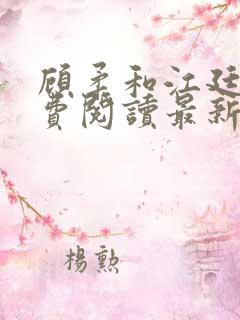 顾矛和江廷
費閱讀最新
楊勲